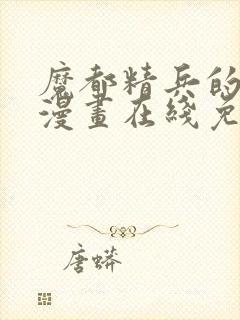 魔都精兵的
漫畫在綫免
唐蟒